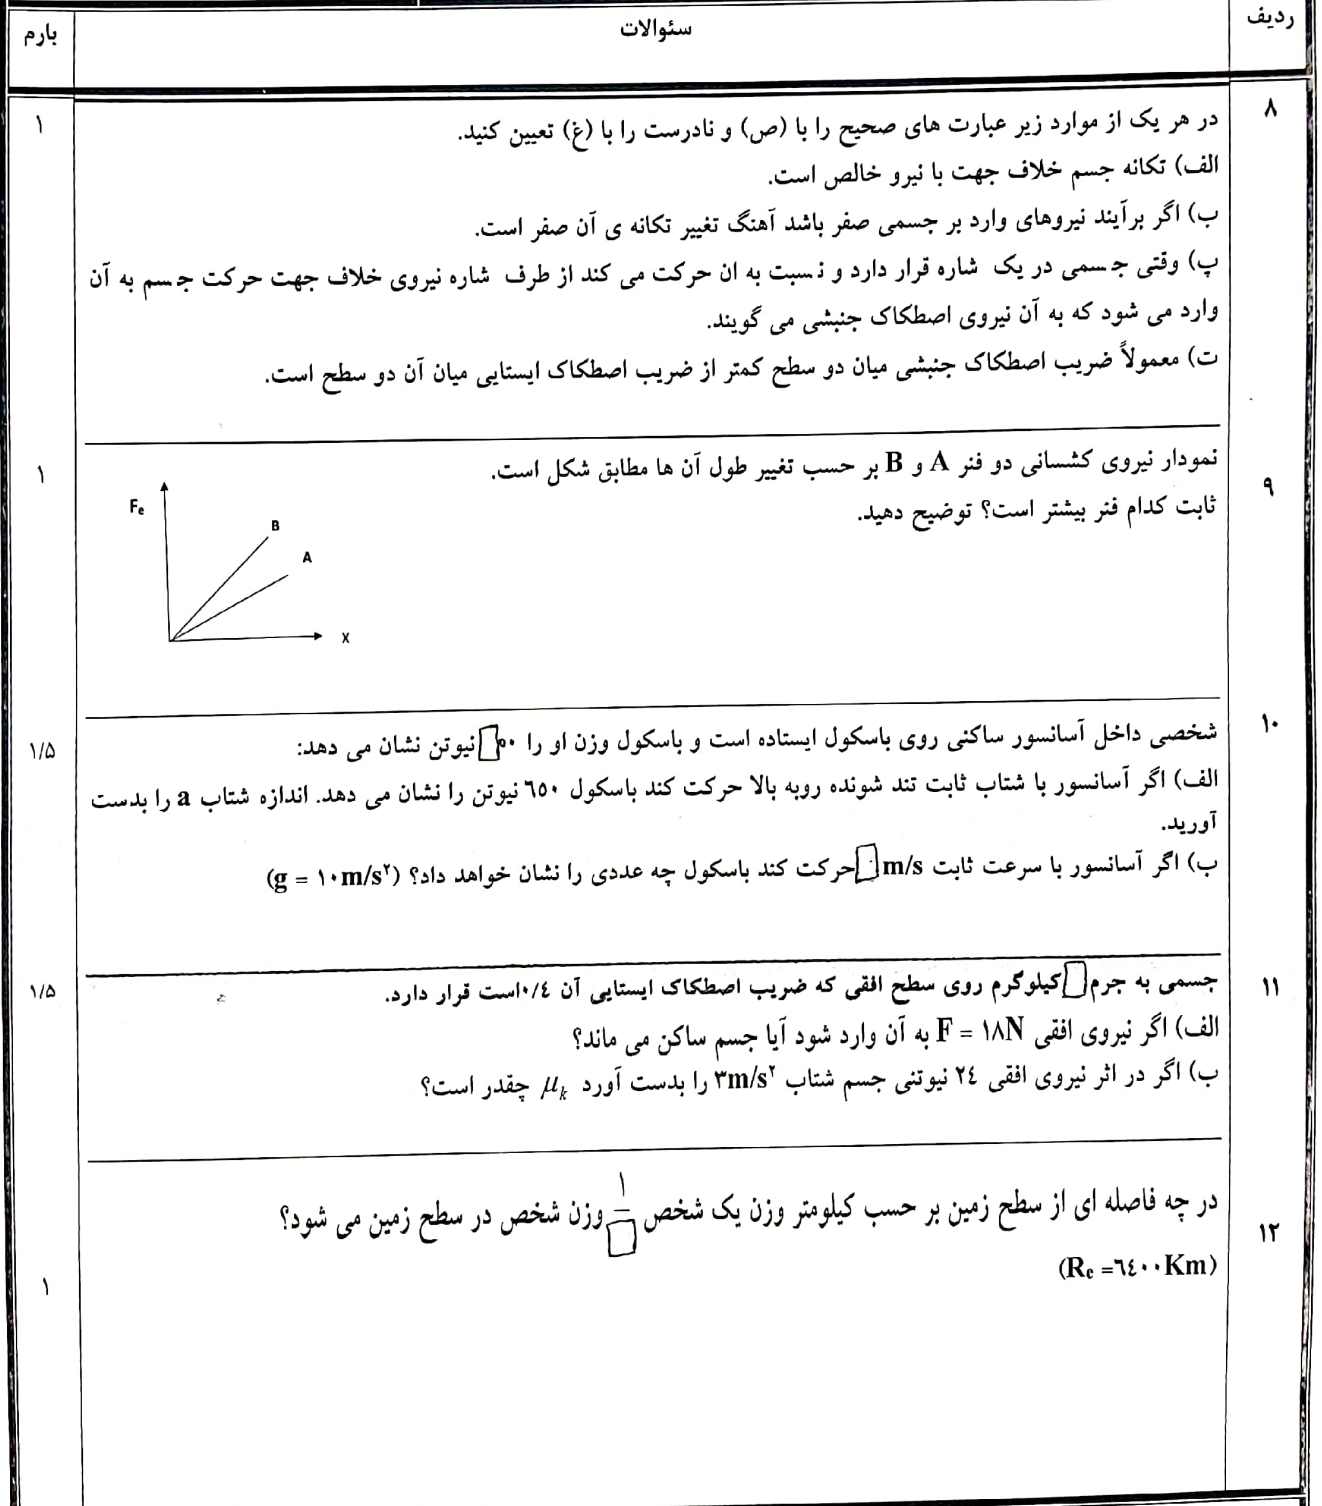 ردیف سئوالات بارم
۸ در هر یک از موارد زیر عبارت های صحیح را با (ص) و نادرست را با (غ) تعیین کنید. ۱
الف) تکانه جسم خلاف جهت با نیرو خالص است.
ب) اگر برآیند نیروهای وارد بر جسمی صفر باشد آهنگ تغییر تکانه ی آن صفر است.
پ) وقتی جسمی در یک شاره قرار دارد و نسبت به ان حرکت می کند از طرف شاره نیروی خلاف جهت حرکت جسم به آن
وارد می شود که به آن نیروی اصطکاک جنبشی می گویند.
ت) معمولاً ضریب اصطکاک جنبشی میان دو سطح کمتر از ضریب اصطکاک ایستایی میان آن دو سطح است.
۹ نمودار نیروی کشسانی دو فنر A و B بر حسب تغییر طول آن ها مطابق شکل است. ۱
ثابت کدام فنر بیشتر است؟ توضیح دهید.
Fe
B
A
X
۱۰ شخصی داخل آسانسور ساکنی روی باسکول ایستاده است و باسکول وزن او را نیوتن نشان می دهد: ۱/۵
الف) اگر آسانسور با شتاب ثابت تند شونده روبه بالا حرکت کند باسکول ٦٥٠ نیوتن را نشان می دهد. اندازه شتاب a را بدست
آورید.
ب) اگر آسانسور با سرعت ثابت m/s حرکت کند باسکول چه عددی را نشان خواهد داد؟ (g = ۱۰m/s²)
۱۱ جسمی به جرم کیلوگرم روی سطح افقی که ضریب اصطکاک ایستایی آن ۰/٤است قرار دارد. ۱/۵
الف) اگر نیروی افقی F = ۱۸N به آن وارد شود آیا جسم ساکن می ماند؟
ب) اگر در اثر نیروی افقی ٢٤ نیوتنی جسم شتاب ۳m/s² را بدست آورد μk چقدر است؟
۱۲ در چه فاصله ای از سطح زمین بر حسب کیلومتر وزن یک شخص ۱ وزن شخص در سطح زمین می شود؟ ۱
(Re =٦٤٠٠Km)